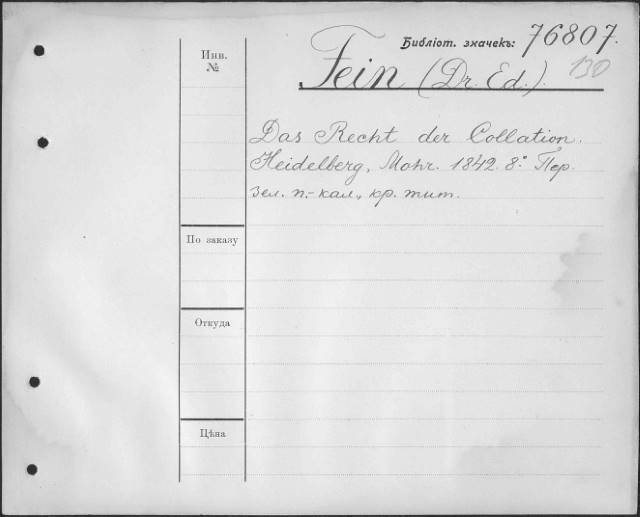 Библіот. значекъ: 76807.
130
Fein (Dr. Ed.).
Инв.
№
Das Recht der Collation.
Heidelberg, Mohr. 1842. 8.° Пер.
зел. п.-кал., кр. тит.
По заказу
Откуда
Цѣна